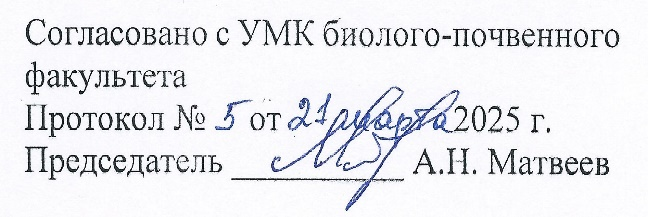 Согласовано с УМК биолого-почвенного
факультета
Протокол № 5 от 21 марта 2025 г.
Председатель ____________ А.Н. Матвеев